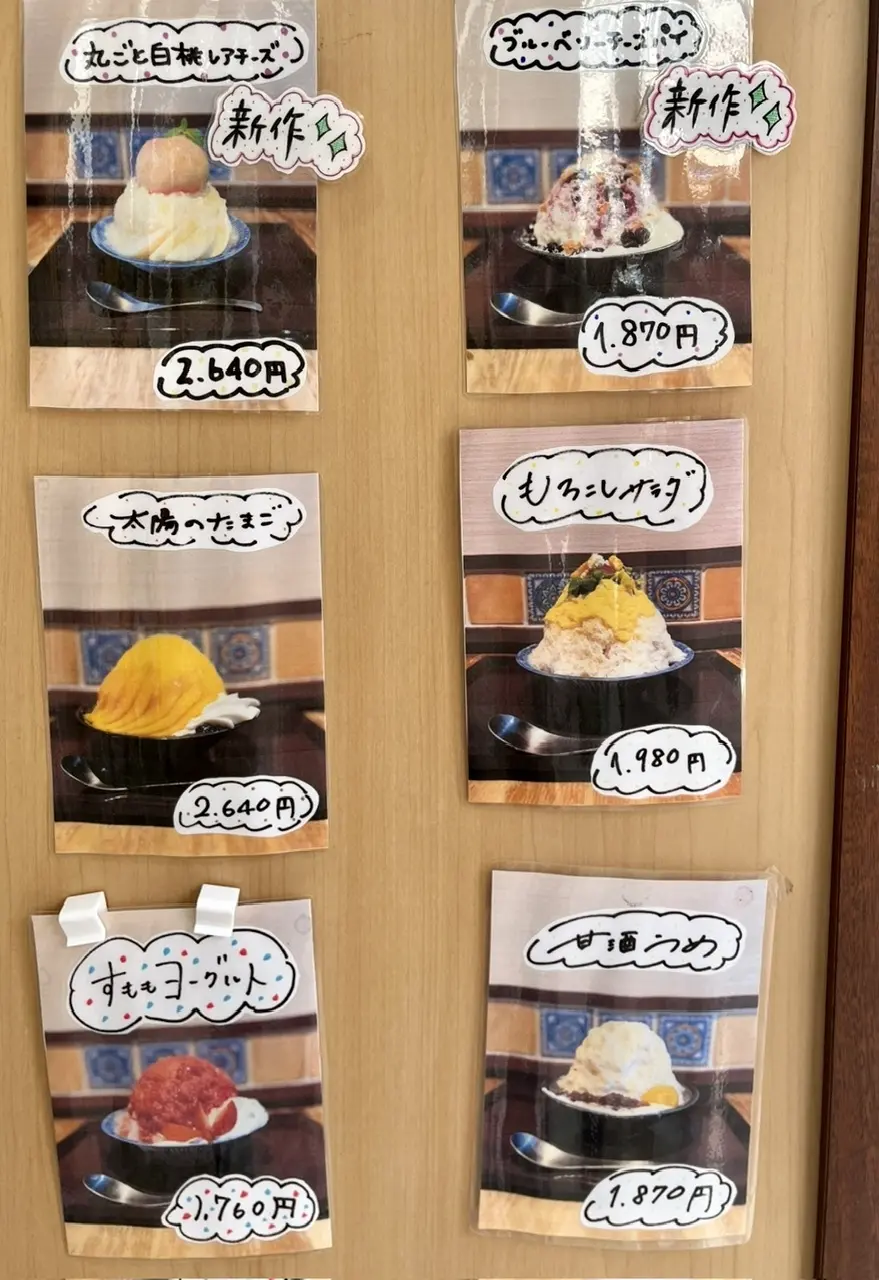 丸ごと白桃レアチーズ
新作
2.640円
ブルーベリーチーズパイ
新作
1.870円
太陽のたまご
2.640円
もろこしサラダ
1.980円
すももヨーグルト
1.760円
甘酒うめ
1.870円